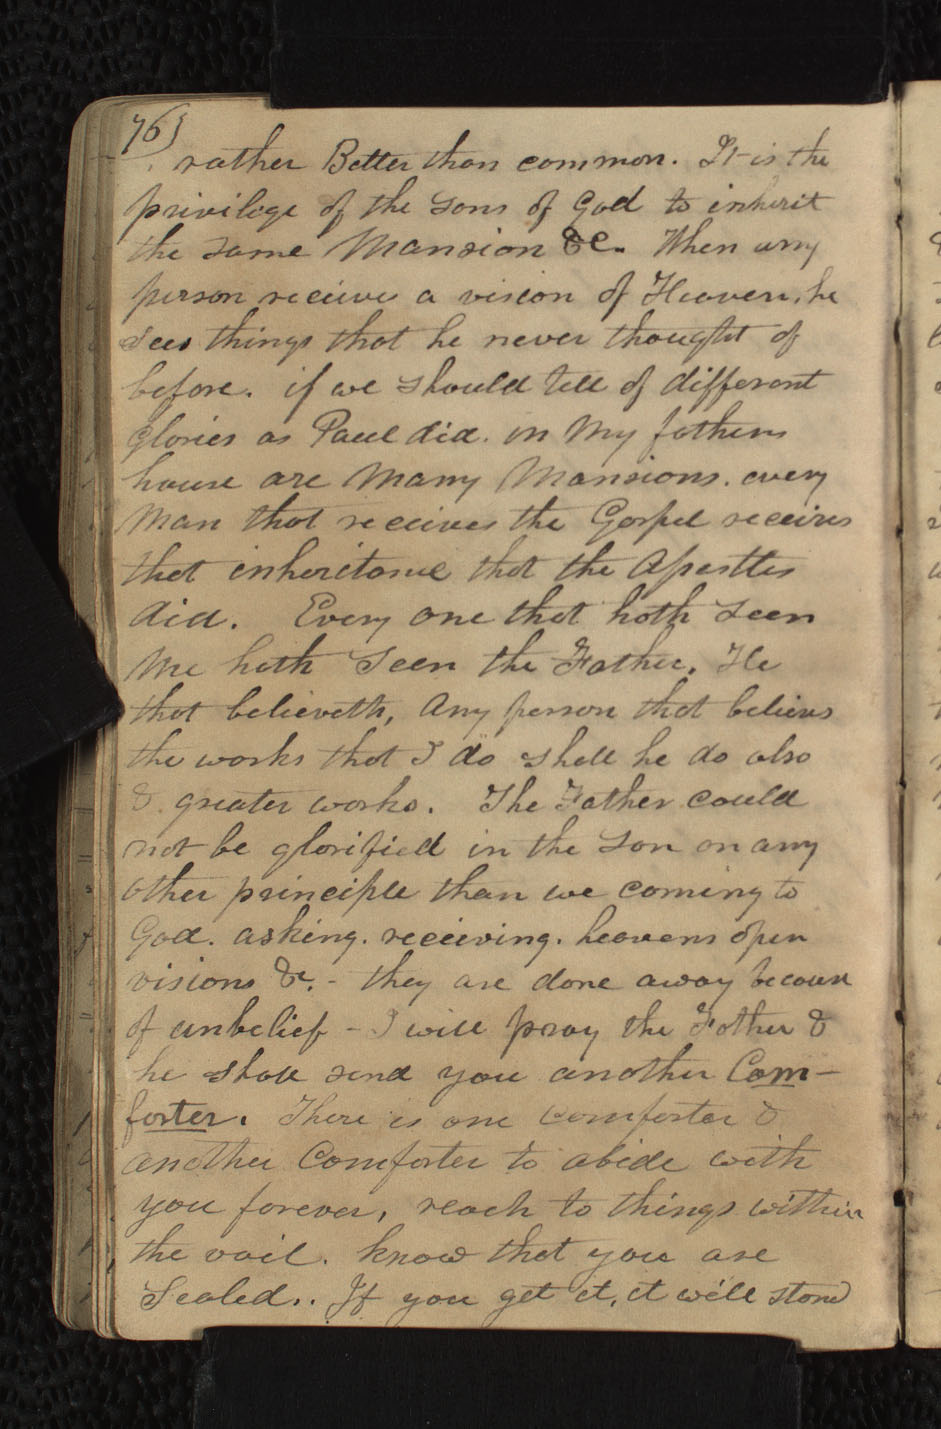 76)
rather Better than common. It is the
privilege of the sons of God to inherit
the same Mansion &c. When any
person receives a vision of Heaven, he
sees things that he never thought of
before. if we should tell of different
glories as Paul did. in My fathers
house are Many Mansions. every
Man that receives the Gospel receives
that inheritance that the Apostles
did. Every one that hath seen
Me hath Seen the Father. He
that believeth, Any person that believes
the works that I do shall he do also
& greater works. The Father could
not be glorified in the Son on any
other principle than we coming to
God. asking. receiving. heavens open
visions &c. - they are done away because
of unbelief - I will pray the Father &
he shall send you another Com-
forter. There is one comforter &
another Comforter to abide with
you forever, reach to things within
the vail. know that you are
Sealed.. If you get it, it will stand